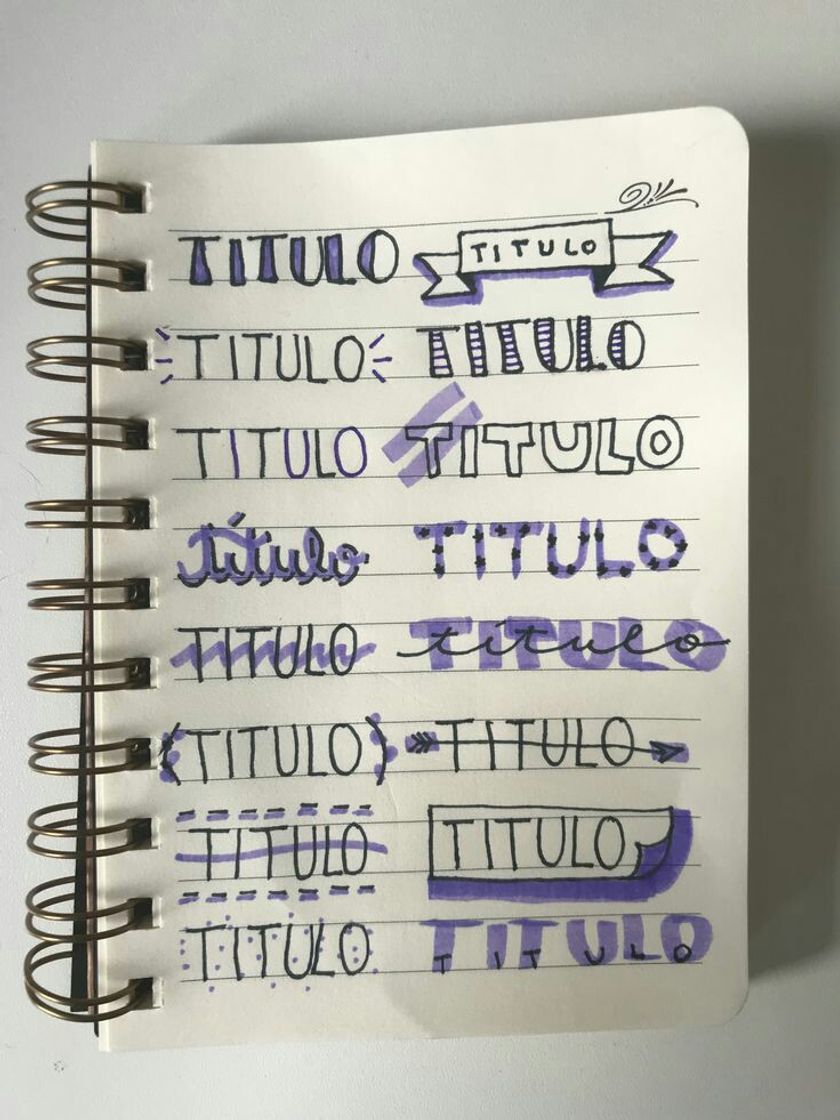 TITULO TITULO
TITULO TITULO
TITULO TITULO
título TITULO
TITULO TITULO título
(TITULO) TITULO
TITULO TITULO
TITULO TITULO TITULO